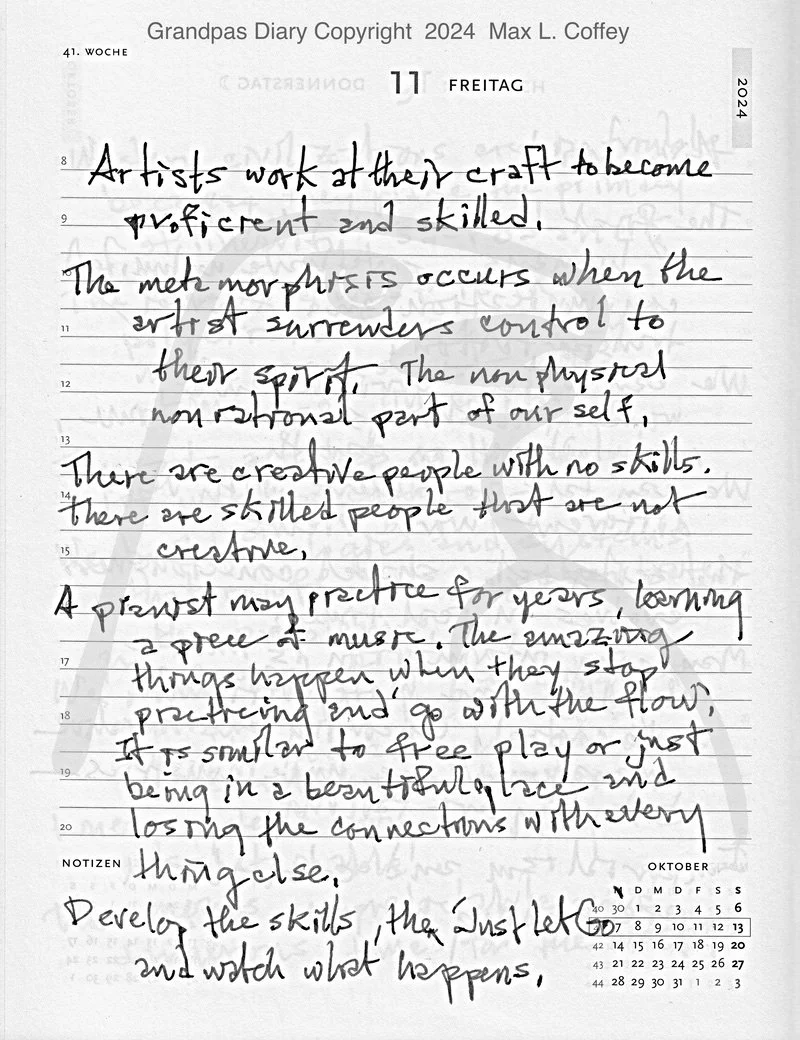 Grandpas Diary Copyright 2024 Max L. Coffey
41. WOCHE
11 FREITAG
2024
8 Artists work at their craft to become
9 proficient and skilled.
The metamorphisis occurs when the
11 artist surrenders control to
their spirit. The non physical
12 non rational part of our self.
13 There are creative people with no skills.
14 There are skilled people that are not
15 creative.
A pianist may practice for years, learning
a piece of music. The amazing
17 things happen when they stop
18 practicing and go with the flow.
It is similar to free play or just
19 being in a beautiful place and
20 losing the connections with every
NOTIZEN thing else.
Develop the skills, then Just let Go
and watch what happens.
OKTOBER
M D M D F S S
40 30 1 2 3 4 5 6
7 8 9 10 11 12 13
42 14 15 16 17 18 19 20
43 21 22 23 24 25 26 27
44 28 29 30 31 1 2 3